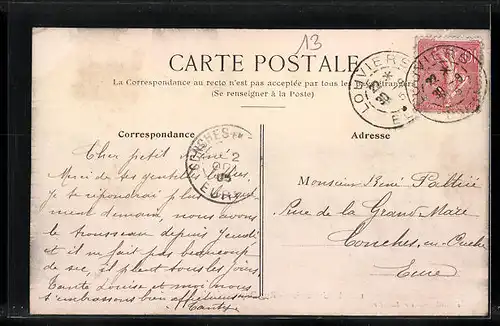 13
CARTE POSTALE
La Correspondance au recto n'est pas acceptée par tous les pays étrangers
(Se renseigner à la Poste)
LOUVIERS
EURE
Correspondance
Adresse
CONCHES
EURE
Cher petit aimé
Merci de tes gentilles
je te répondrai plus
ment demain, nous avons
le trousseau depuis Jeudi
et il ne fait pas beaucoup
de sec, il pleut tous les jours
Tante Louise et moi nous
t'embrassons bien
Monsieur René
Rue de la Grande Mare
Conches-en-Ouche
Eure